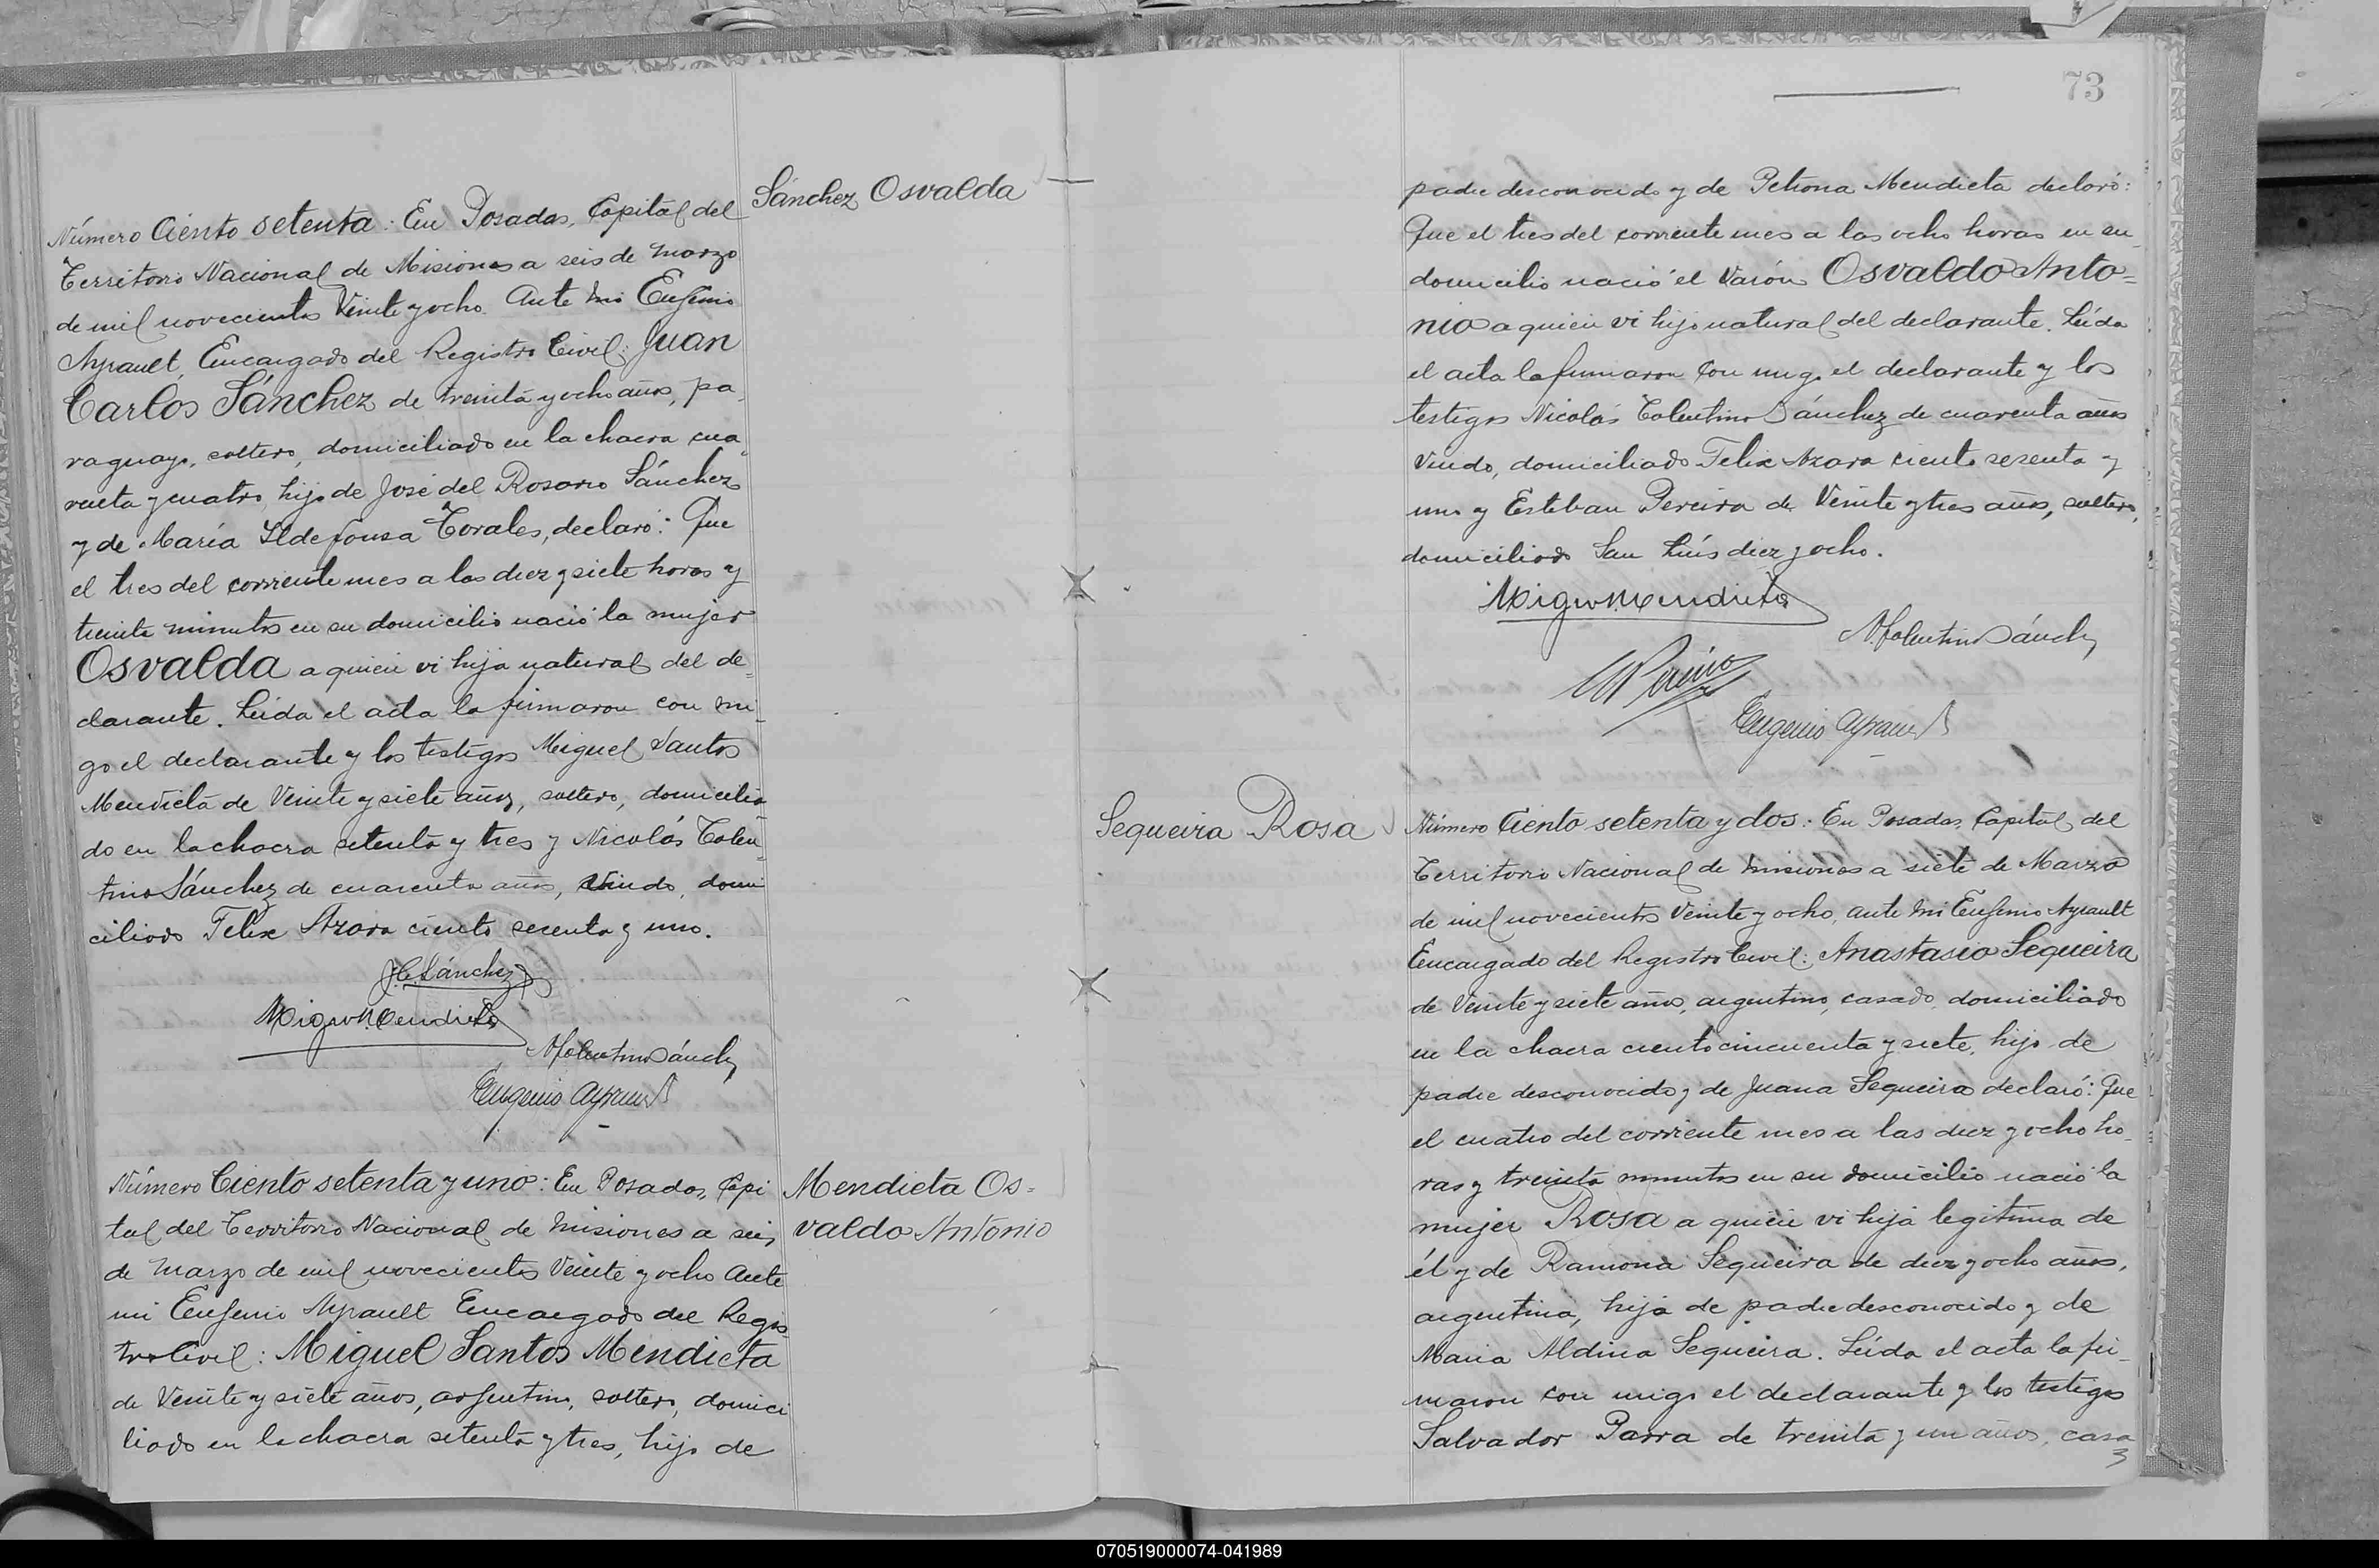 Sánchez Osvalda
Número Ciento setenta: En Posadas, Capital del
Territorio Nacional de Misiones a seis de Marzo
de mil novecientos Veinte y ocho. Ante mi Eugenio
Ayrault, Encargado del Registro Civil: Juan
Carlos Sánchez de treinta y ocho años, pa-
raguayo, soltero, domiciliado en la chacra cua-
renta y cuatro, hijo de José del Rosario Sánchez
y de María Ildefonsa Torales, declaró: Que
el tres del corriente mes a las diez y siete horas y
treinta minutos en su domicilio nació la mujer
Osvalda a quien vi hija natural del de-
clarante. Leida el acta la firmaron con mi-
go el declarante y los testigos Miguel Santos
Mendieta de Veinte y siete años, soltero, domicilia-
do en la chacra setenta y tres y Nicolás Tolen-
tino Sánchez de cuarenta años, Viudo, domi
ciliado Felix Azara ciento sesenta y uno.
J. C. Sánchez
Miguel S. Mendieta
N. Tolentino Sánchez
Eugenio Ayrault
Mendieta Os-
valdo Antonio
Número Ciento setenta y uno: En Posadas, Capi
tal del Territorio Nacional de Misiones a seis
de Marzo de mil novecientos Veinte y ocho Ante
mi Eugenio Ayrault Encargado del Regis-
tro Civil: Miguel Santos Mendieta
de Veinte y siete años, argentino, soltero, domici
liado en la chacra setenta y tres, hijo de
73
padre desconocido y de Petrona Mendieta declaró:
Que el tres del corriente mes a las ocho horas en su
domicilio nació el Varón Osvaldo Anto-
nio a quien vi hijo natural del declarante. Leida
el acta la firmaron con migo el declarante y los
testigos Nicolás Tolentino Sánchez de cuarenta años
Viudo, domiciliado Felix Azara ciento sesenta y
uno y Esteban Pereira de Veinte y tres años, soltero,
domiciliado San Luís diez y ocho.
Miguel S. Mendieta
N. Tolentino Sánchez
E. Pereira
Eugenio Ayrault
Sequeira Rosa
Número Ciento setenta y dos: En Posadas, Capital del
Territorio Nacional de Misiones a siete de Marzo
de mil novecientos Veinte y ocho, ante mi Eugenio Ayrault
Encargado del Registro Civil: Anastasio Sequeira
de Veinte y siete años, argentino, casado, domiciliado
en la chacra ciento cincuenta y siete, hijo de
padre desconocido y de Juana Sequeira declaró: Que
el cuatro del corriente mes a las diez y ocho ho-
ras y treinta minutos en su domicilio nació la
mujer Rosa a quien vi hija legitima de
él y de Ramona Sequeira de diez y ocho años,
argentina, hija de padre desconocido y de
Maria Aldina Sequeira. Leida el acta la fir-
maron con migo el declarante y los testigos
Salvador Parra de treinta y un años, casa
070519000074-041989